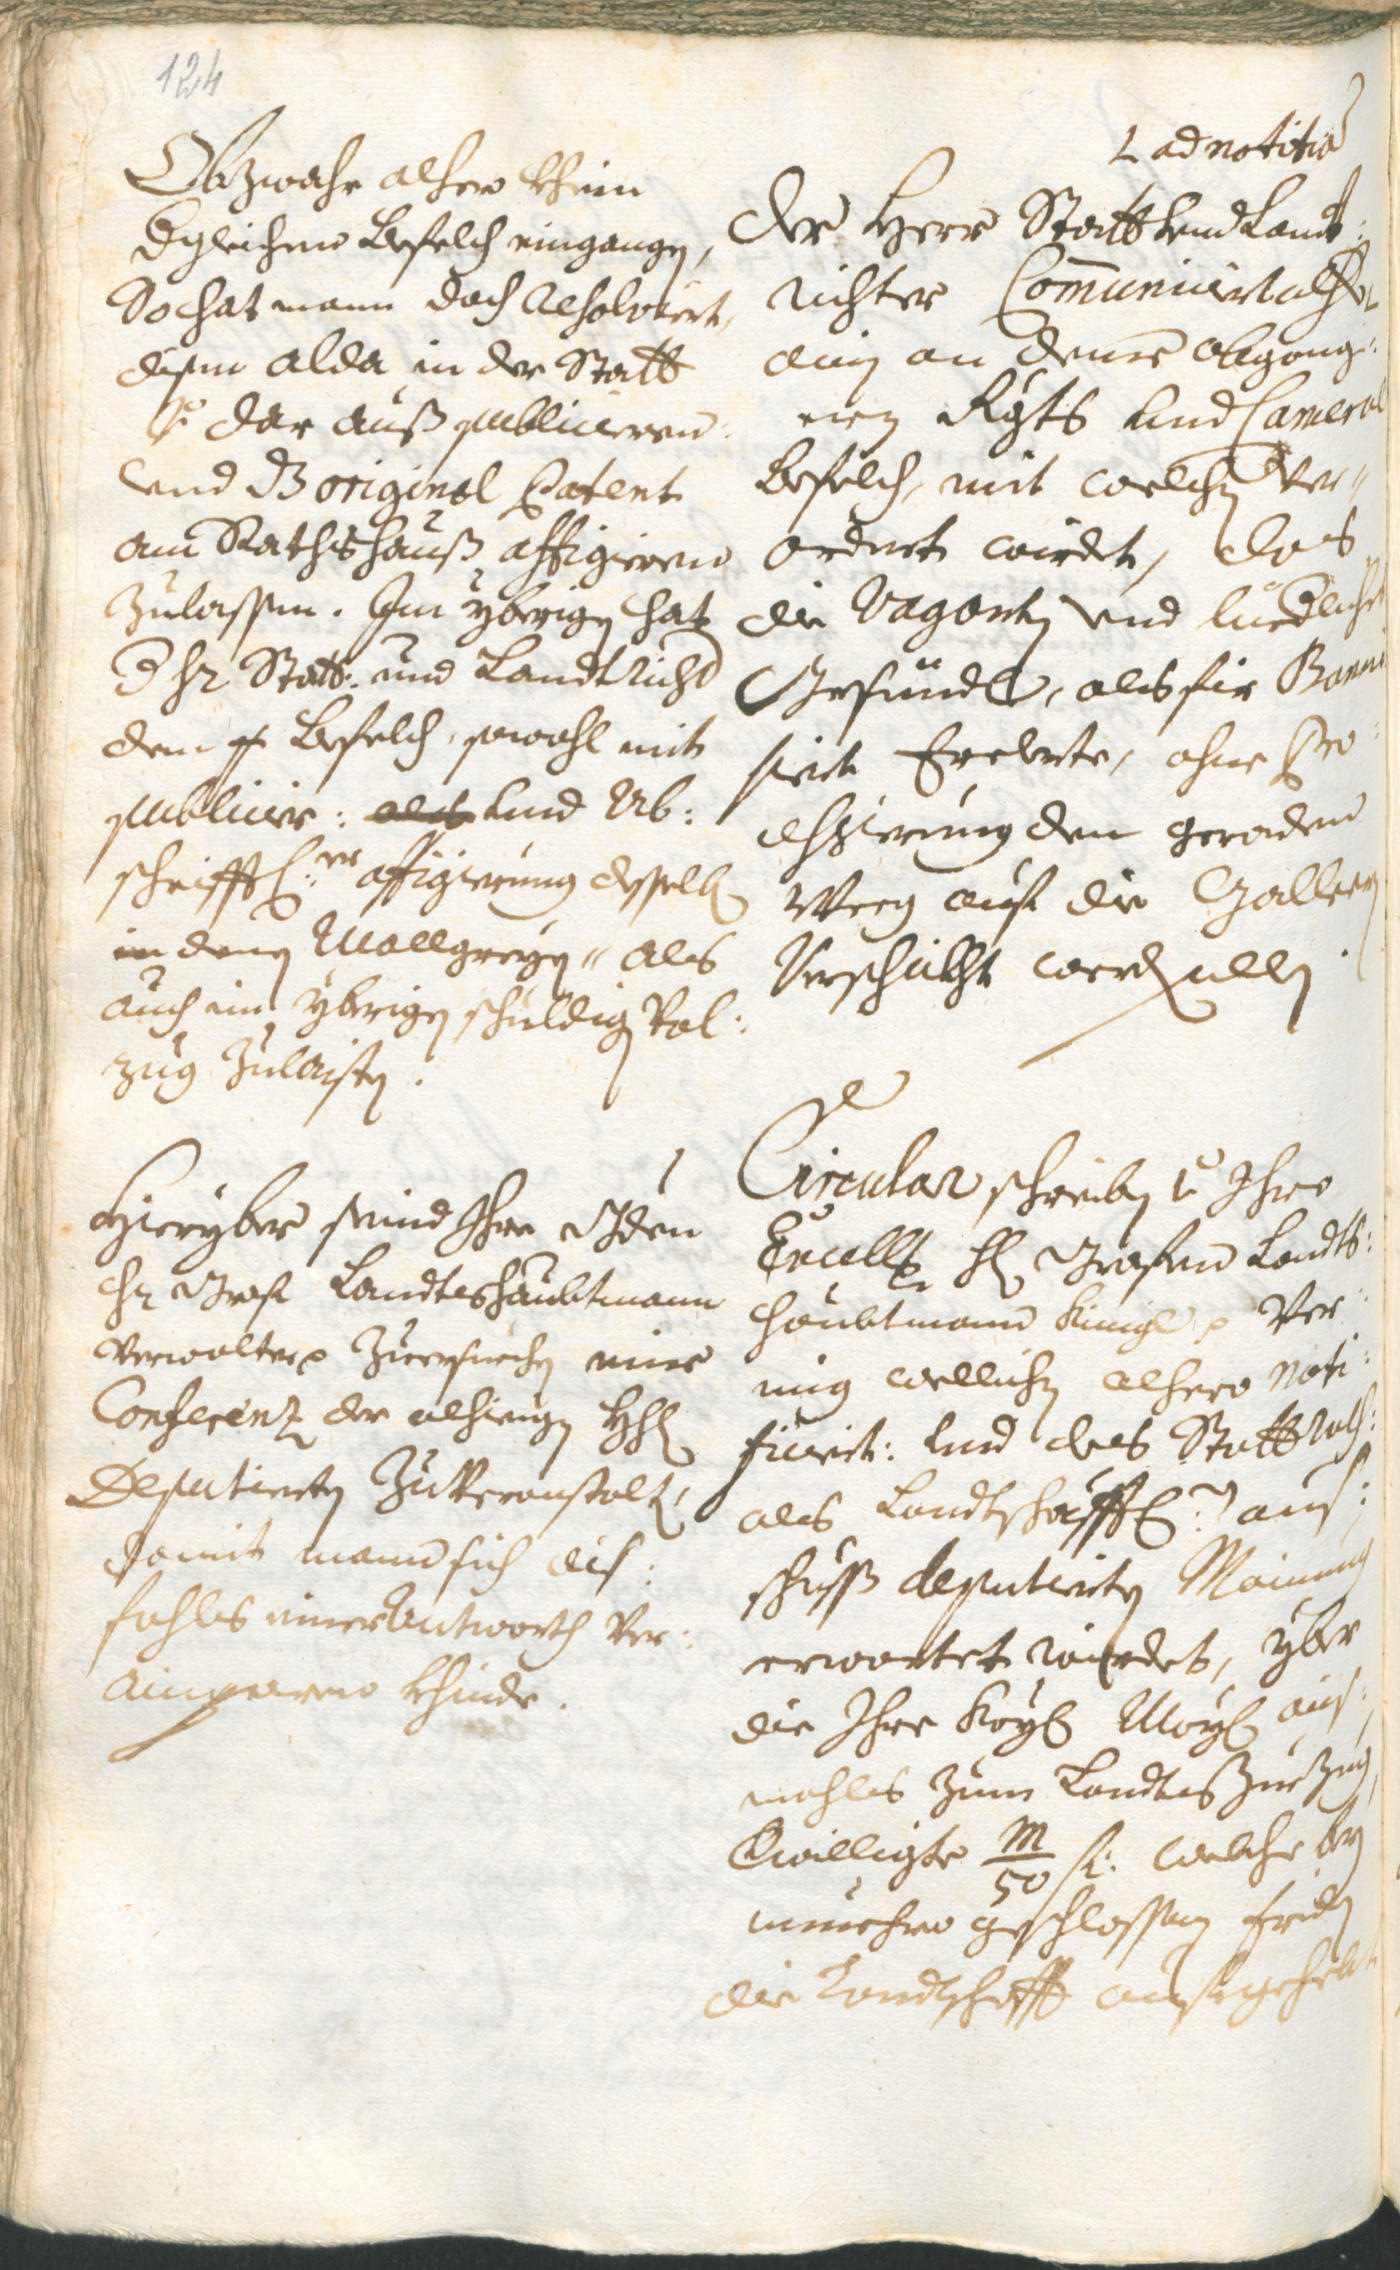 124
Obzwahr alhero khein
dgleichen Befelch eingangen,
So hat mann doch resolviert,
disen alda in der Statt
dar auß publicieren
und dz original Patent
am Rathshauß affigieren
zulassen. Im yberigen hat
Statt: und Landtricht
dem Befelch, sowohl mit
publicier: als und Ab:
schrifftl:er affigierung desselben
in denen Mallgreyen als
auch im yberigen schuldigen Vol:
zug zulaisten.
Hieryber seind Ihre Gden
hr Graf Landtshaubtmann
verwalter zuersuechen eine
Conferenz der alhiesigen Hh
Deputierten zu veranstalten,
damit mann sich dis:
fahls einer Antworth ver:
ainparen khinde.
L ad notitia
Der Herr Statt und Landt:
richter Communiciert alhero
ain an denen abgang:
nen Rgts und Cameral
Befelch, mit welchen ver=
ordnet wirdt, das
die Vaganten und liederliche
Gesindl, als fir Banni
siert Erclerte, ohne Pro:
cessierung den geraden
Weeg auf die Galleern
Verschickht werden sollen.
Circular schreiben Ihro
Excellz h Grafen Landts:
haubtmann Künigl Ver:
mig wellichen alhero noti:
ficiert: und des Stattrath:
als Landtschafftl: aus:
schuss deputierten Mainung
erwartet wirdet, yber
die Ihre Kayl Mayl
mahls zum Landts Zuezug
Bwilligte M/50 f: welche bey
nunmehro geschlossnen friden
die Landtschafft